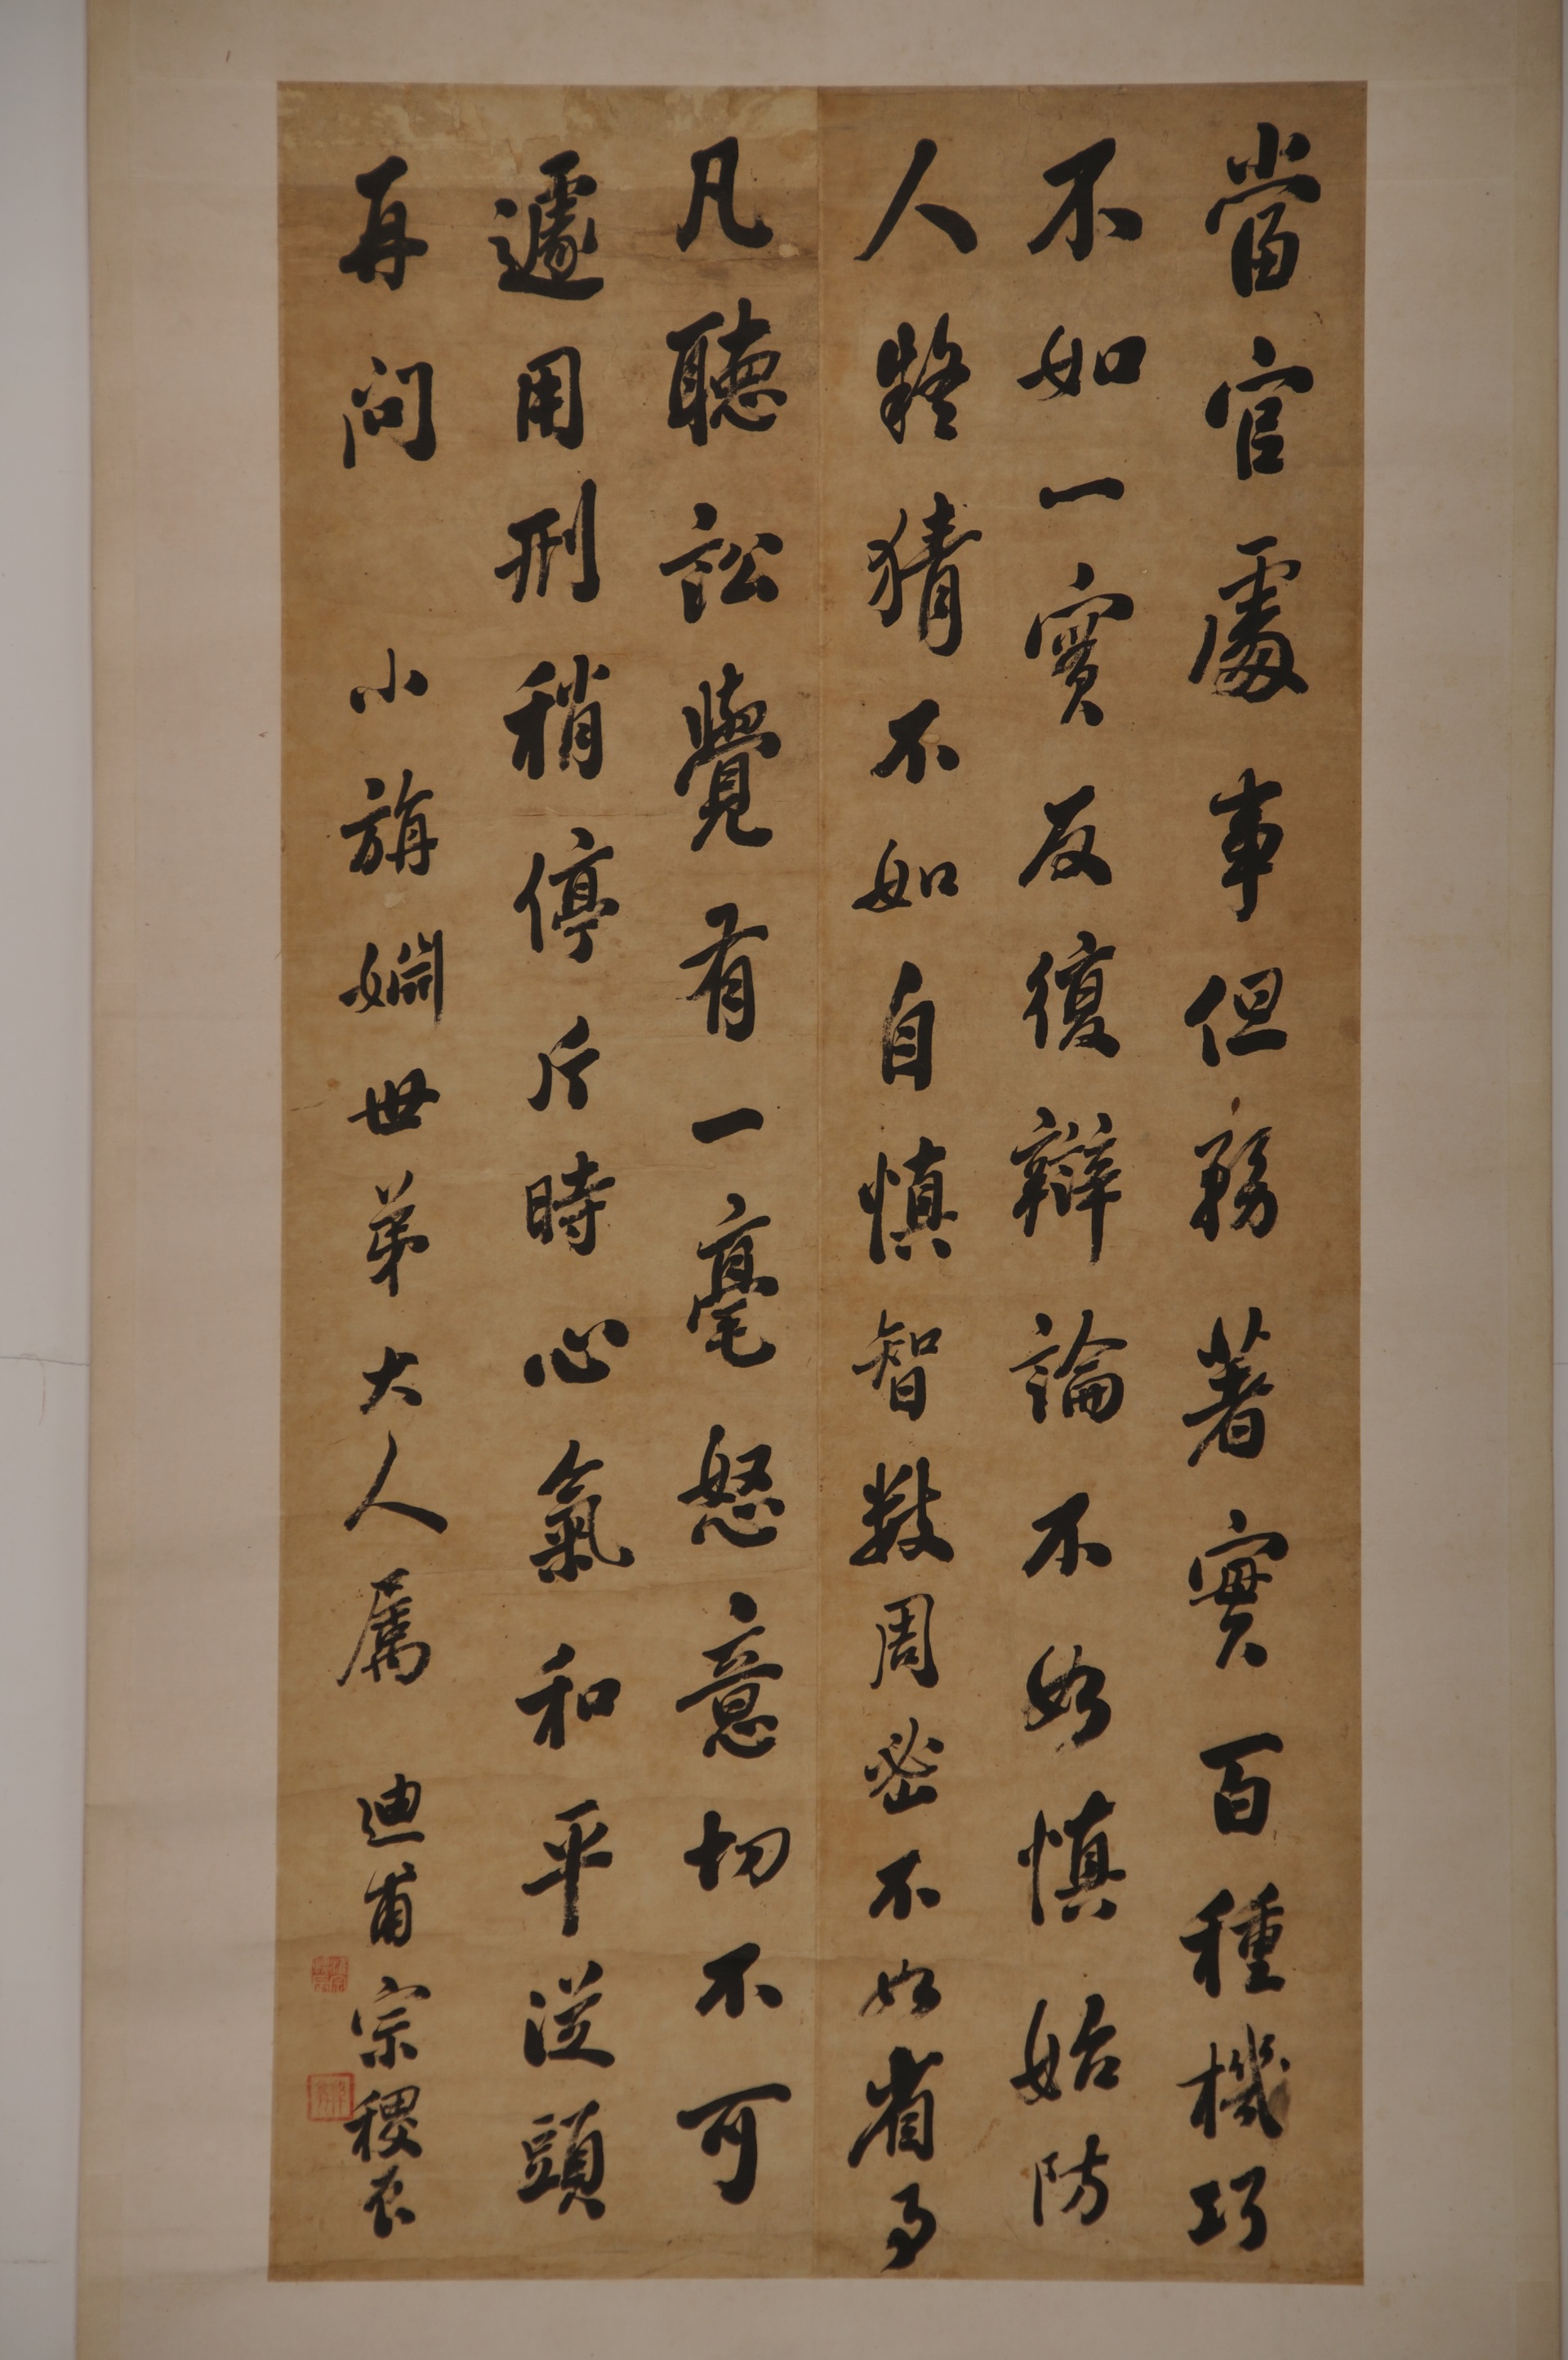 當官處事但務著實百種機巧
不如一實反復辯論不如慎始防
人疑猜不如自慎智數周密不如省事
凡聽訟覺有一毫怒意切不可
遽用刑稍停片時心氣和平從頭
再問 小旃姻世弟大人屬 迪甫宗稷辰